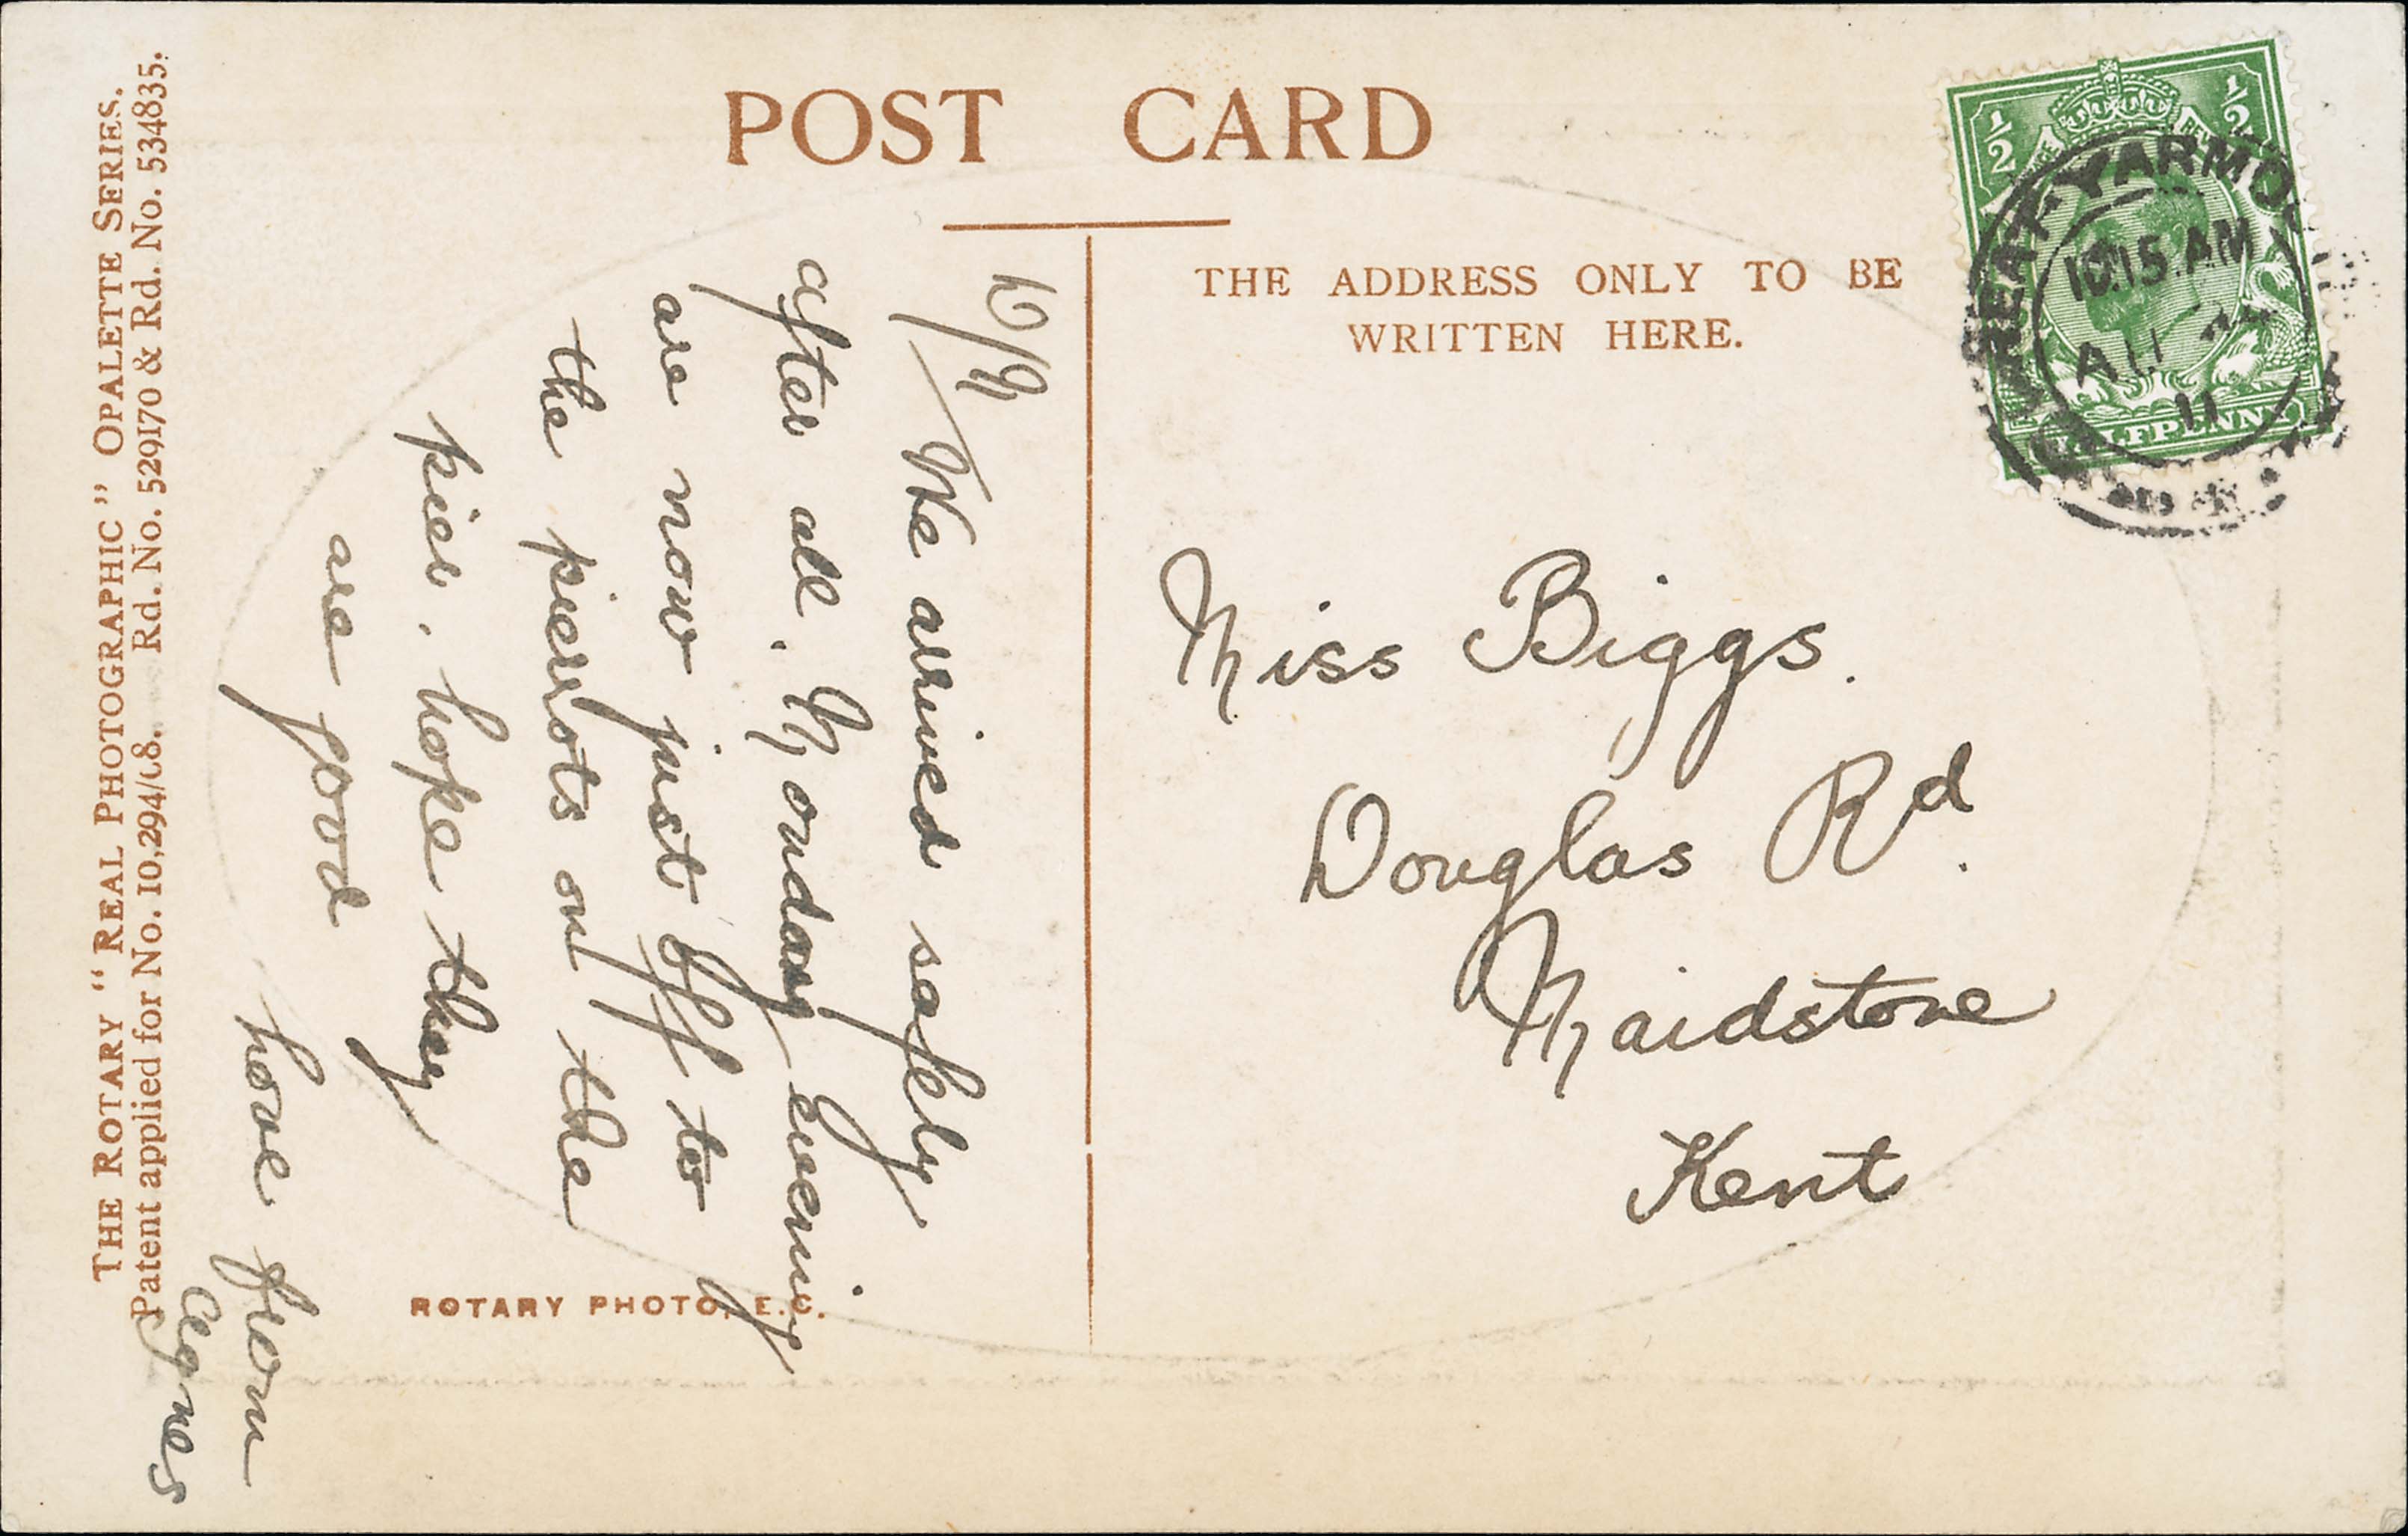 POST CARD
THE ADDRESS ONLY TO BE
WRITTEN HERE.
THE ROTARY “REAL PHOTOGRAPHIC” OPALETTE SERIES.
Patent applied for No. 10,294/08. Rd. No. 529170 & Rd. No. 534835.
D/M
We arrived safely
after all. Monday evening
are now just off to
the pierrots on the
pier. hope they
are good
love from
Agnes
ROTARY PHOTO, E.C.
Miss Biggs.
Douglas Rd.
Maidstone
Kent
½ ½
GREAT YARMO
10.15 AM
AU
11
HALFPENNY